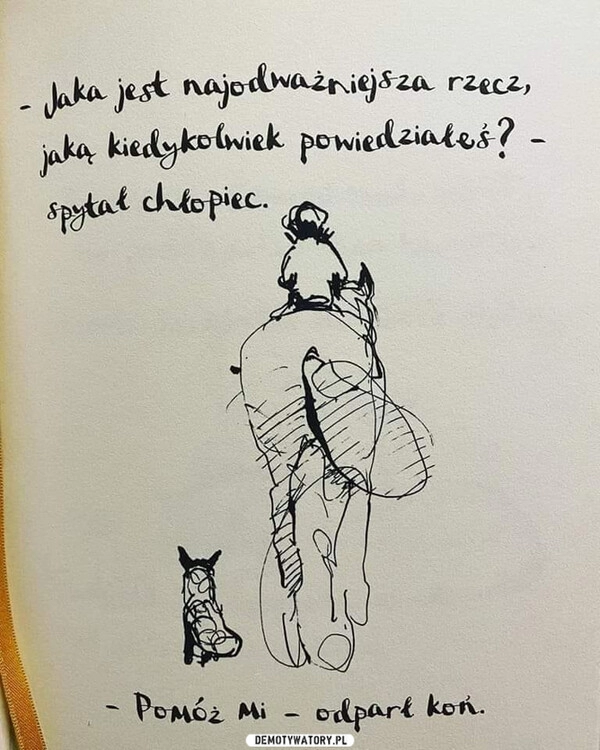 - Jaka jest najodważniejsza rzecz,
jaką kiedykolwiek powiedziałeś? -
spytał chłopiec.
- Pomóż mi - odparł koń.
DEMOTYWATORY.PL